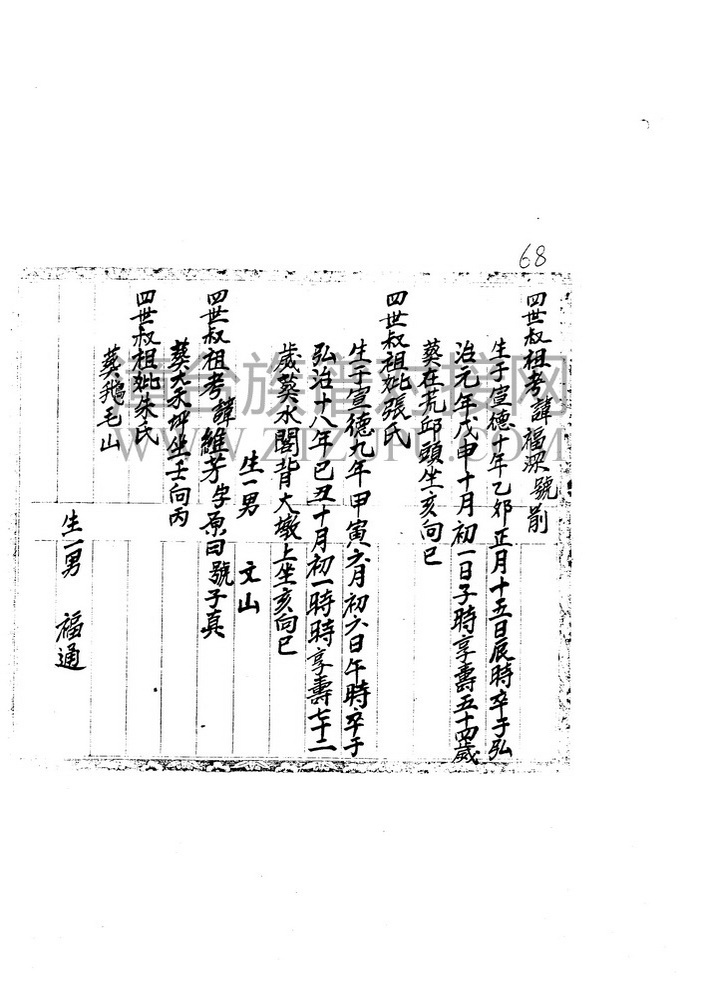 68
四世叔祖考諱福深號前
生于宣德十年乙卯正月十五日辰時卒于弘
治元年戊申十月初一日子時享壽五十四歲
葬在荒邱頭坐亥向巳
四世叔祖妣張氏
生于宣德九年甲寅六月初六日午時卒于
弘治十八年巳丑十月初一時時享壽七十二
歲葬水閣背大墩上坐亥向巳
生一男 文山
四世叔祖考諱維芳字原曰號子真
葬大禾坪坐壬向丙
四世叔祖妣朱氏
葬鵝毛山
生一男 福通
WWW.ZTZUPU.COM